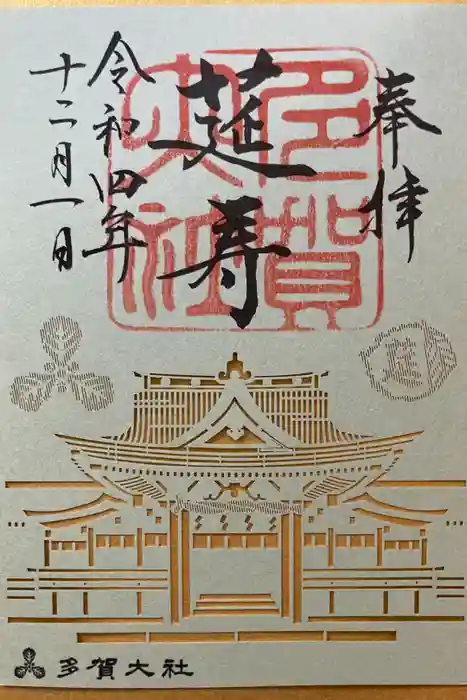 奉拝
莚寿
多賀
大社
令和四年
十二月一日
莚寿
多賀大社